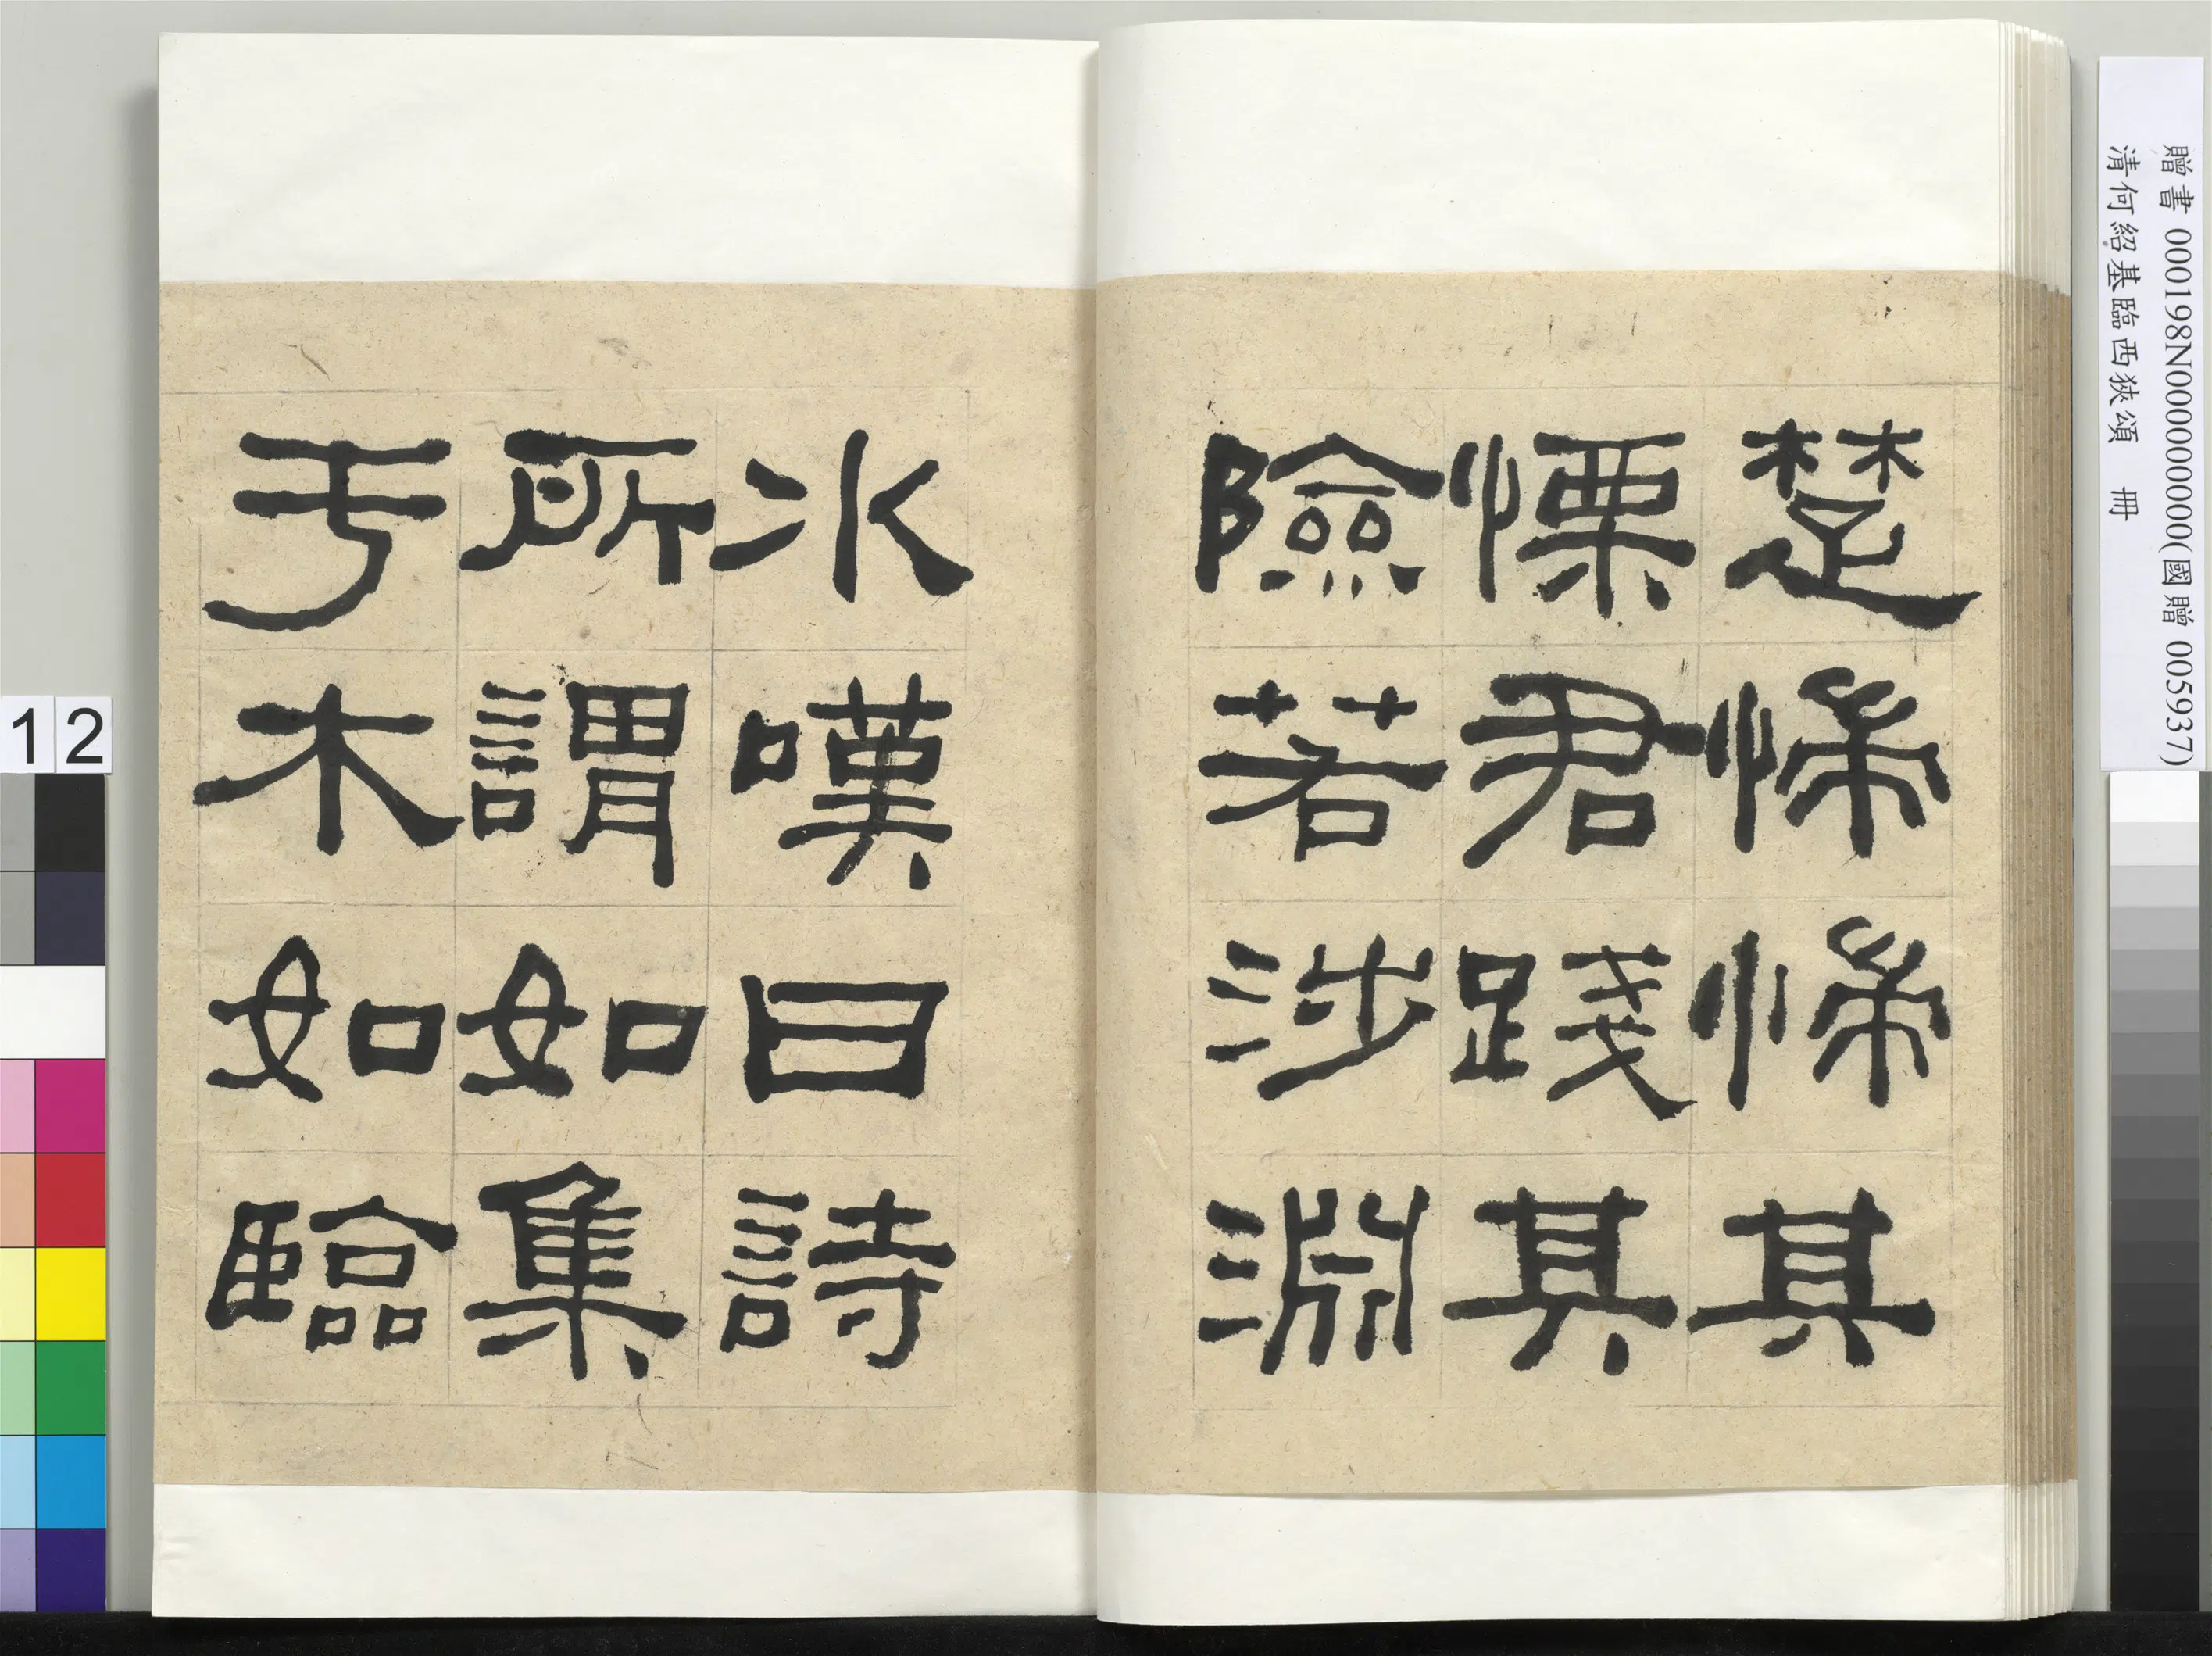 楚惴惴其
慄君踐其
險若涉淵
冰嘆曰詩
所謂如集
于木如臨
贈書 000198N000000000(國贈 005937)
清何紹基臨西狹頌 冊
12